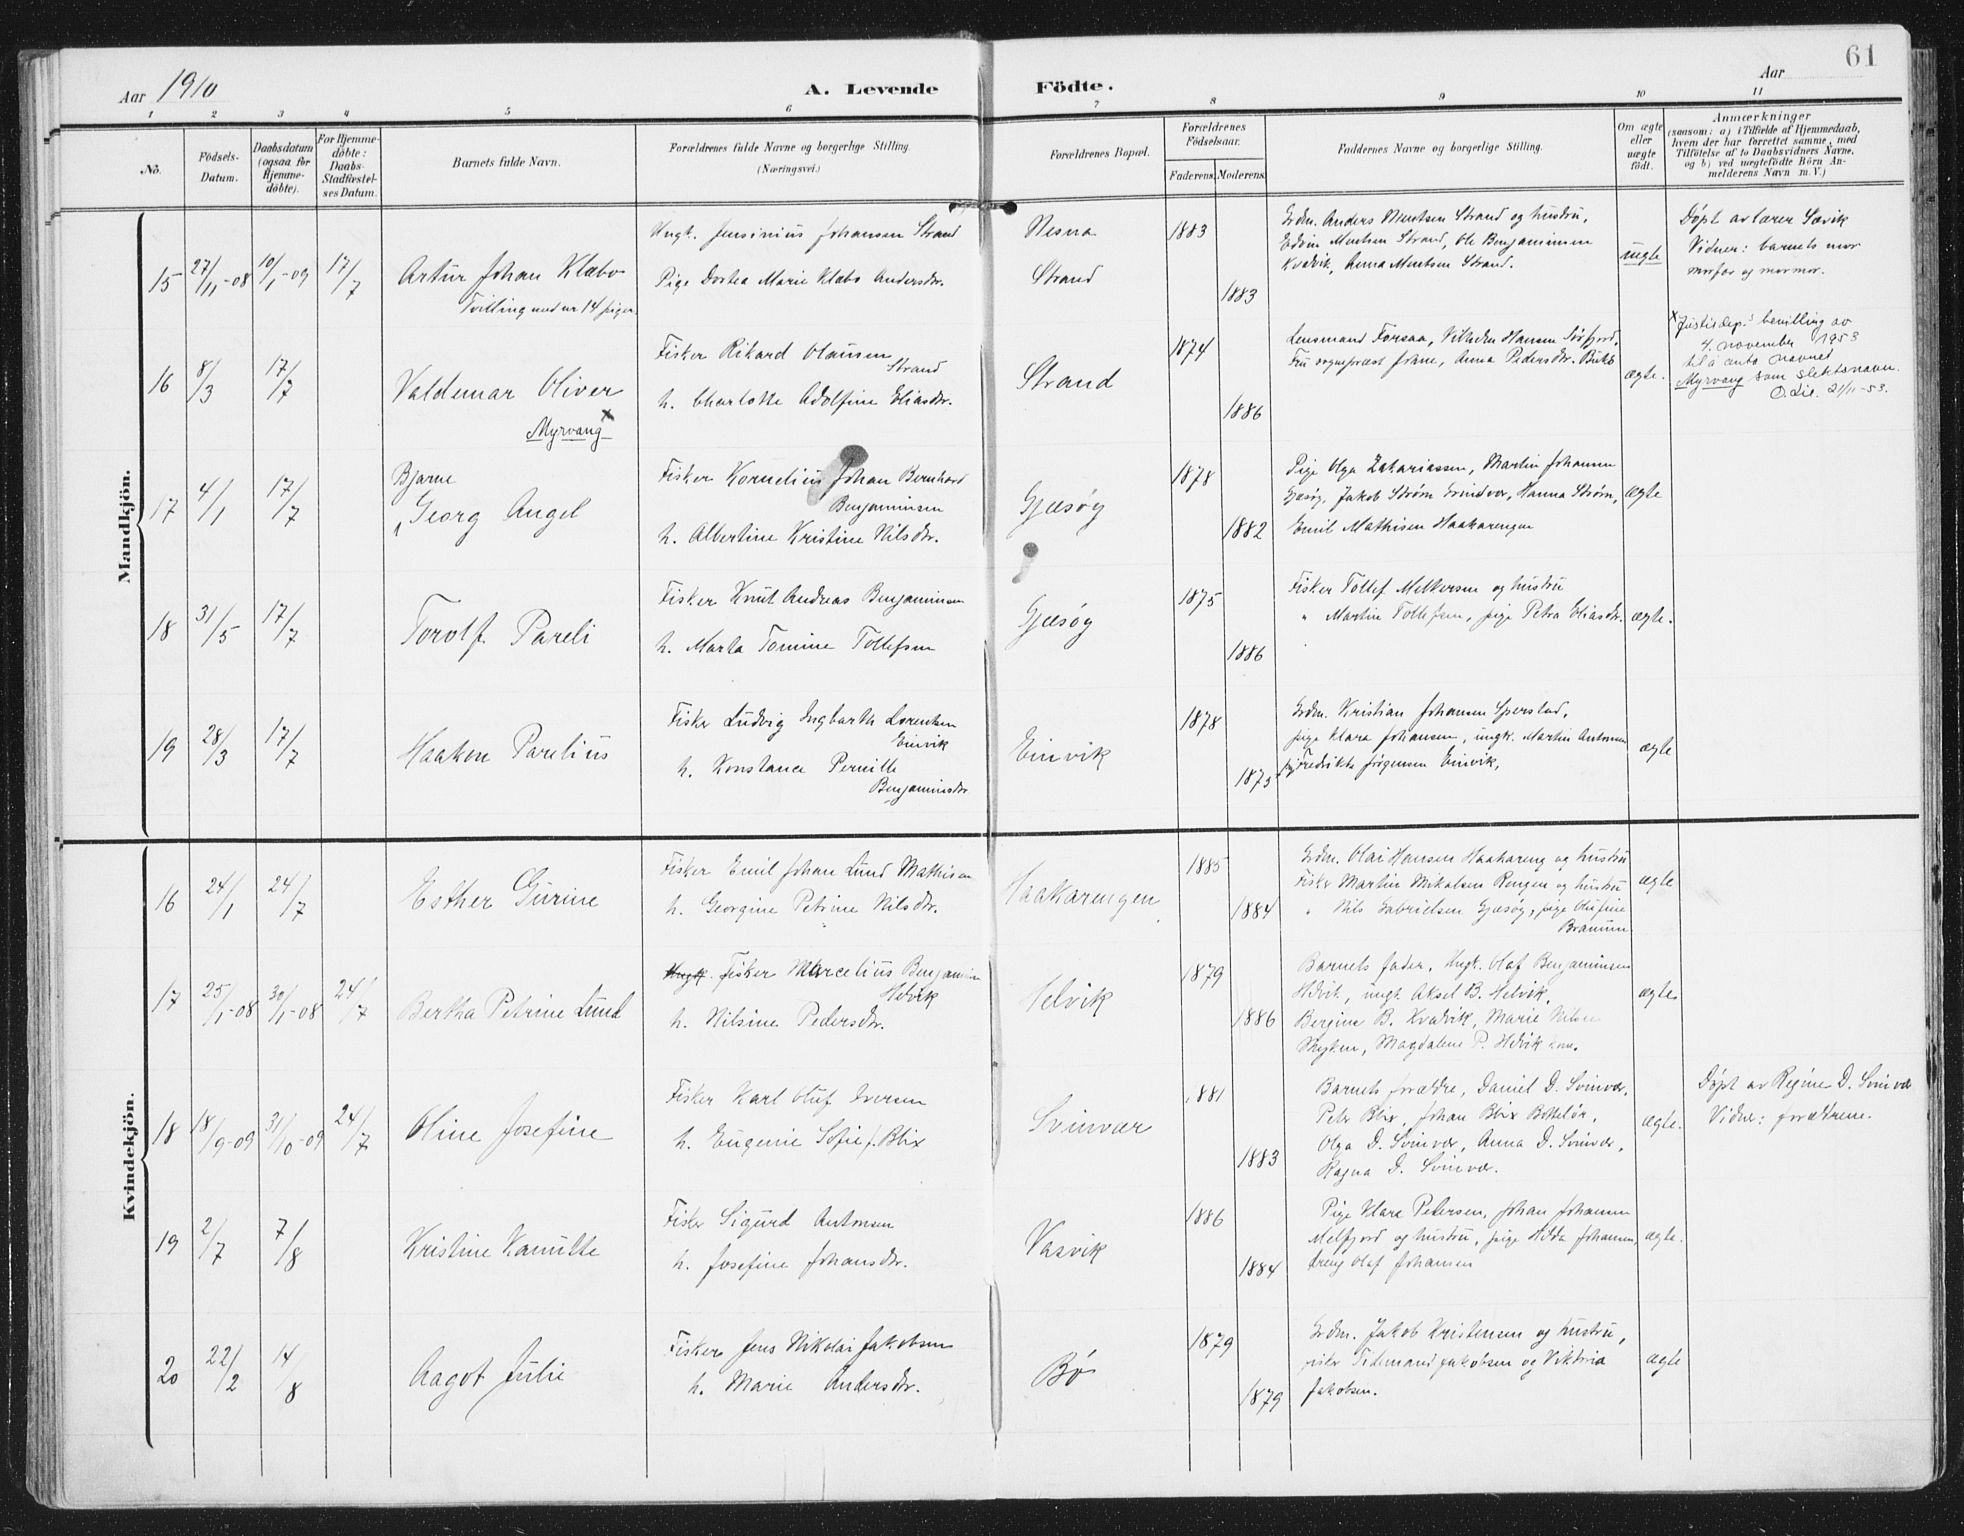 61
Aar 1910
A. Levende Födte.
Aar
1 2 3 4 5 6 7 8 9 10 11
No.
Födsels-
Datum.
Daabsdatum
(ogsaa for
Hjemme-
döbte).
For Hjemme-
döbte:
Daabs-
Stadfæstel-
ses Datum.
Barnets fulde Navn.
Forældrenes fulde Navne og borgerlige Stilling.
(Næringsvei.)
Forældrenes Bopæl.
Forældrenes
Födselsaar.
Faderens. Moderens.
Faddernes Navne og borgerlige Stilling.
Om ægte
eller
uægte
födt.
Anmærkninger
(saasom: a) i Tilfælde af Hjemmedaab,
hvem der har forrettet samme, med
Tilföielse af to Daabsvidners Navne,
og b) ved uægtefödte Börn An-
melderens Navn m. V.)
Mandkjön.
15 27/11-08 10/1-09 17/7
Artur Johan Klæbo
Tvilling med nr 14 piger.
Ungk. Jensinius Johansen Strand
Pige Dortea Marie Klæbo Andersdtr.
Nesna
Strand
1883
1883
Grdm. Anders Mentsen Strand og hustru,
Edvin Mentsen Strand, Ole Benjaminsen
Kvalvik, Anna Mentsen Strand.
uægte
Døpt av lærer Sævik
Vidner: barnets mor
morfar og mormor.
16 8/3 17/7
Valdemar Oliver
Myrvang x
Fisker Rikard Olausen
Strand
h. Charlotte Adolfine Eliasdtr.
Strand
1874
1886
Lensmand Forsaa, Vilhelm Hansen Sørfjord,
Fru sogneprest Friane, Anna Pedersdtr.
ægte.
x Justisdep.s bevilling av
4. november 1953
til å anta navnet
Myrvang som slektsnavn.
21/11-53.
17 4/1 17/7
Bjarne
Georg Angel
Fisker Kornelius Johan Bernhard
Benjaminsen
h. Albertine Kristine Nilsdtr.
Gjæsøy
1878
1882
Pige Olga Zakariassen, Martin Johansen
Gjæsøy, Jakob Strøm Grindvær, Hanna Strøm,
Emil Mathisen Haakarengen
ægte
18 31/5 17/7
Torolf Pareli
Fisker Knut Andreas Benjaminsen
h. Marta Tomine Tollefsen
Gjæsøy
1875
1886
Fisker Tollef Melkersen og hustru
" Martin Tollefsen, pige Petra Eliasdtr.
ægte.
19 28/3 17/7
Haakon Parelius
Fisker Ludvig Ingbarth Lorentsen
Einvik
h. Konstance Pernille
Benjaminsdtr
Einvik
1878
1875
Grdm. Kristian Johansen Sperstad,
pige Klara Johansen, ungk. Martin Antonsen
Fredrikke Jørgensen Einvik,
ægte
Kvindekjön.
16 24/1 24/7
Esther Gurine
Fisker Emil Johan Lund Mathisen
h. Georgine Petrine Nilsdtr.
Haakarengen
1885
1884
Grdm. Olai Hansen Haakareng og hustru
Fisker Martin Mikalsen Rengen og hustru
" Nils Gabrielsen Gjæsøy, pige Olufine
ægte
17 25/1-08 30/1-08 24/7
Bertha Petrine Lund
Ungk. Fisker Marcelius Benjaminsen
Helvik
h. Nilsine Pedersdtr.
Helvik
1879
1886
Barnets fader, Ungk. Olaf Benjaminsen
Helvik, ungk Aksel B. Helvik,
Bergine B. Kvalvik, Marie Nilsen
Myken, Magdalene P. Helvik
ægte
18 18/9-09 31/10-09 24/7
Oline Josefine
Fisker Karl Oluf Iversen
h. Eugenie Sofie f. Blix
Svinvær
1881
1883
Barnets forældre, Daniel D. Svinvær,
Peter Blix, Johan Blix Bollør,
Olga D. Svinvær, Anna D. Svinvær,
Ragna D. Svinvær.
ægte.
Døpt av Regine D. Svinvær
Vidner: forældrene.
19 2/7 7/8
Kristine Kamille
Fisker Sigurd Antonsen
h. Josefine Johansdtr.
Vasvik
1886
1884
Pige Klara Petersen, Johan Johansen
Melfjord og hustru, pige Hilda Johansen,
dreng Olaf Johansen
ægte.
20 22/2 14/8
Aagot Julie
Fisker Jens Nikolai Jakobsen
h. Marie Andersdtr.
Bø
1879
1879
Grdm. Jakob Kristensen og hustru,
fisker Tidemand Jakobsen og Viktoria
Jakobsen.
ægte